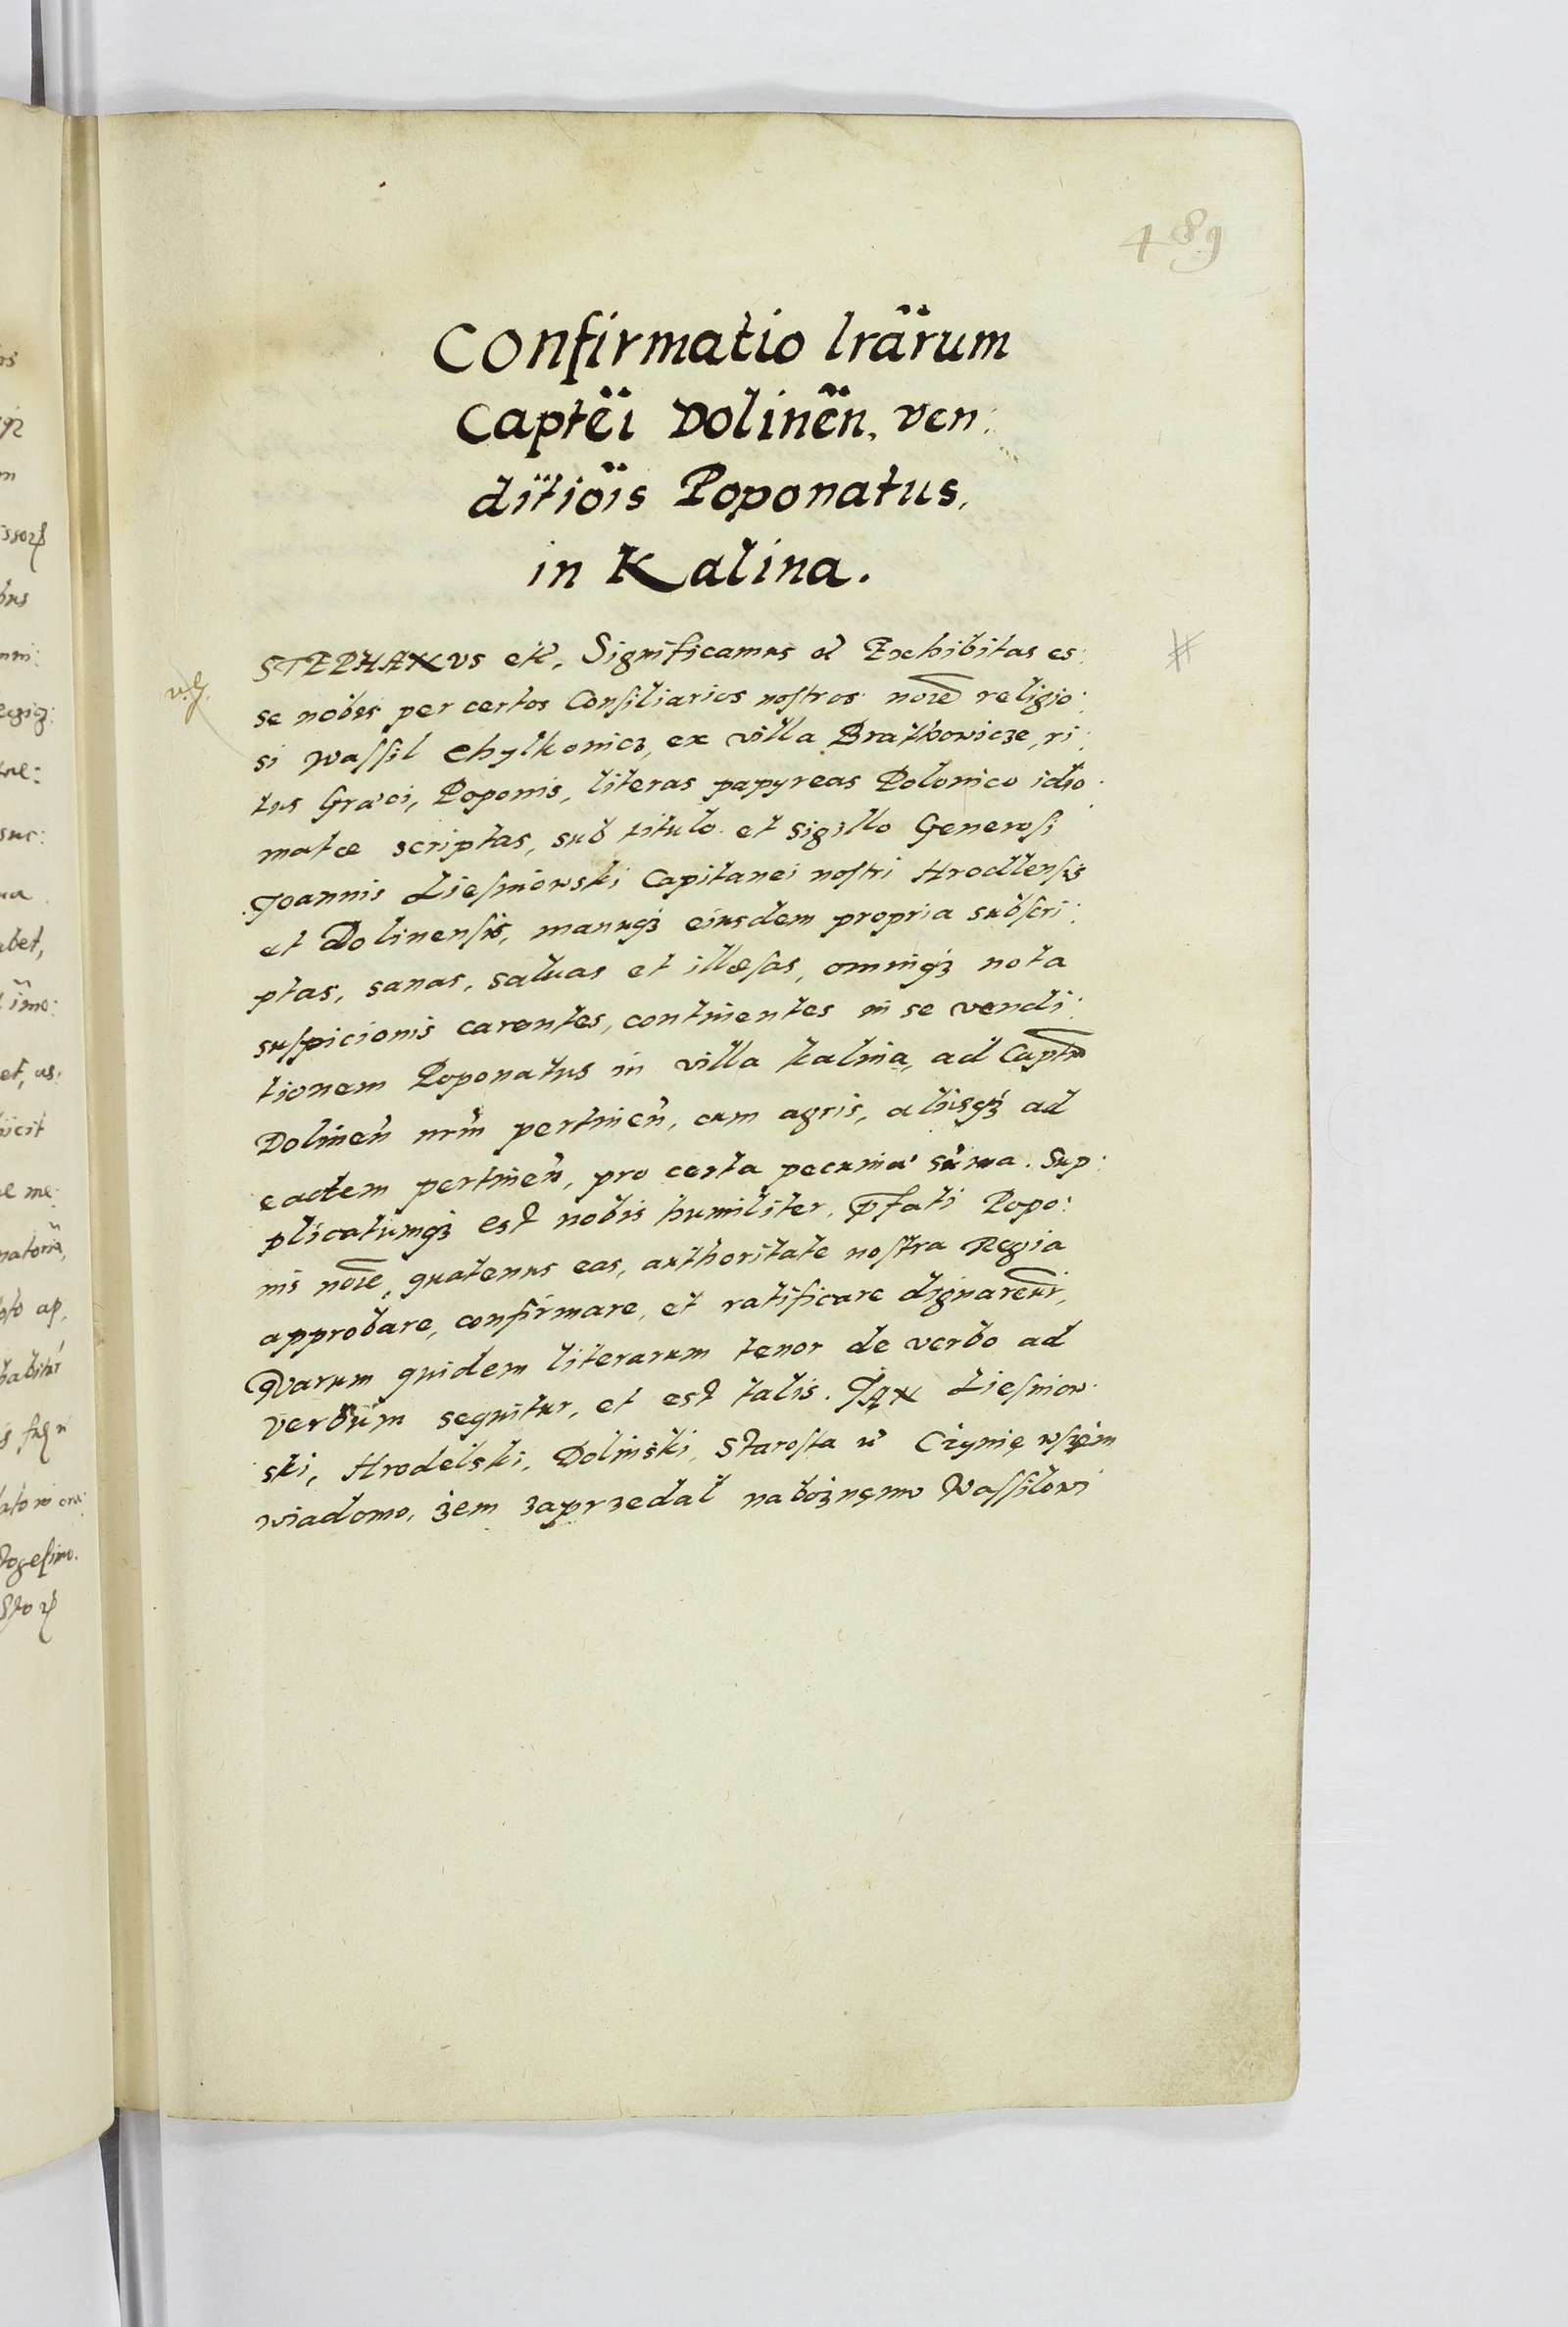 489
Confirmatio lrārum
Captēi Dolinēn. ven:
ditiōis Poponatus.
in Kalina.
STEPHANVS etc. Significamus etc Exhibitas es:
se nobis per certos Consiliarios nostros noīe religio:
si Wassil Chylkowicz, ex villa Brathkowicze, ri:
tus Græci, Poponis, literas papyreas Polonico idio:
mate scriptas, sub titulo et sigillo Generosi
Joannis Liesniowski Capitanei nostri Hrodlensis
et Dolinensis, manuqʒ eiusdem propria subscri:
ptas, sanas, saluas et illæsas, omniqʒ nota
suspicionis carentes, continentes in se vendi:
tionem Poponatus in villa Kalina, ad Captūm
Dolinēn nrm̄ pertinēn, cum agris, aliisqʒ ad
eadem pertinēn, pro certa pecuniæ sūma. Sup:
plicatumqʒ est nobis humiliter, p̄fati Popo:
nis noīe, quatenus eas, authoritate nostra Regia
approbare, confirmare, et ratificare dignaremur,
Quarum quidem literarum tenor de verbo ad
verbum sequitur, et est talis. JAN Liesniow:
ski, Hrodelski, Dolinski, Starosta etc Czynię wszem
wiadomo, żem zaprzedal nabożnemu Wassilowi